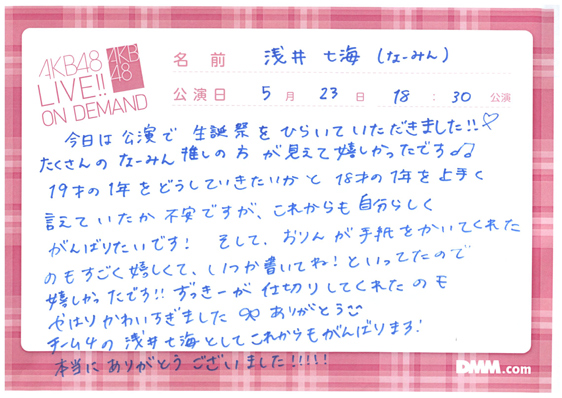 AKB48
LIVE!!
ON DEMAND
AKB
48
名前 浅井 七海 (なーみん)
公演日 5月 23日 18:30 公演
今日は公演で 生誕祭を ひらいていただきました!!♡
たくさんの なーみん推しの方 が見えて嬉しかったです♫
19才の1年をどうしていきたいかと 18才の1年を上手く
言えていたか 不安ですが、これからも自分らしく
がんばりたいです! そして、おりんが手紙をかいてくれた
のもすごく嬉しくて、いつか書いてね!といってたので
嬉しかったです!! ずっきーが 仕切りしてくれたのも
やはりかわいすぎました ありがとう
チーム4の 浅井七海としてこれからもがんばります!
本当にありがとうございました!!!!!
DMM.com